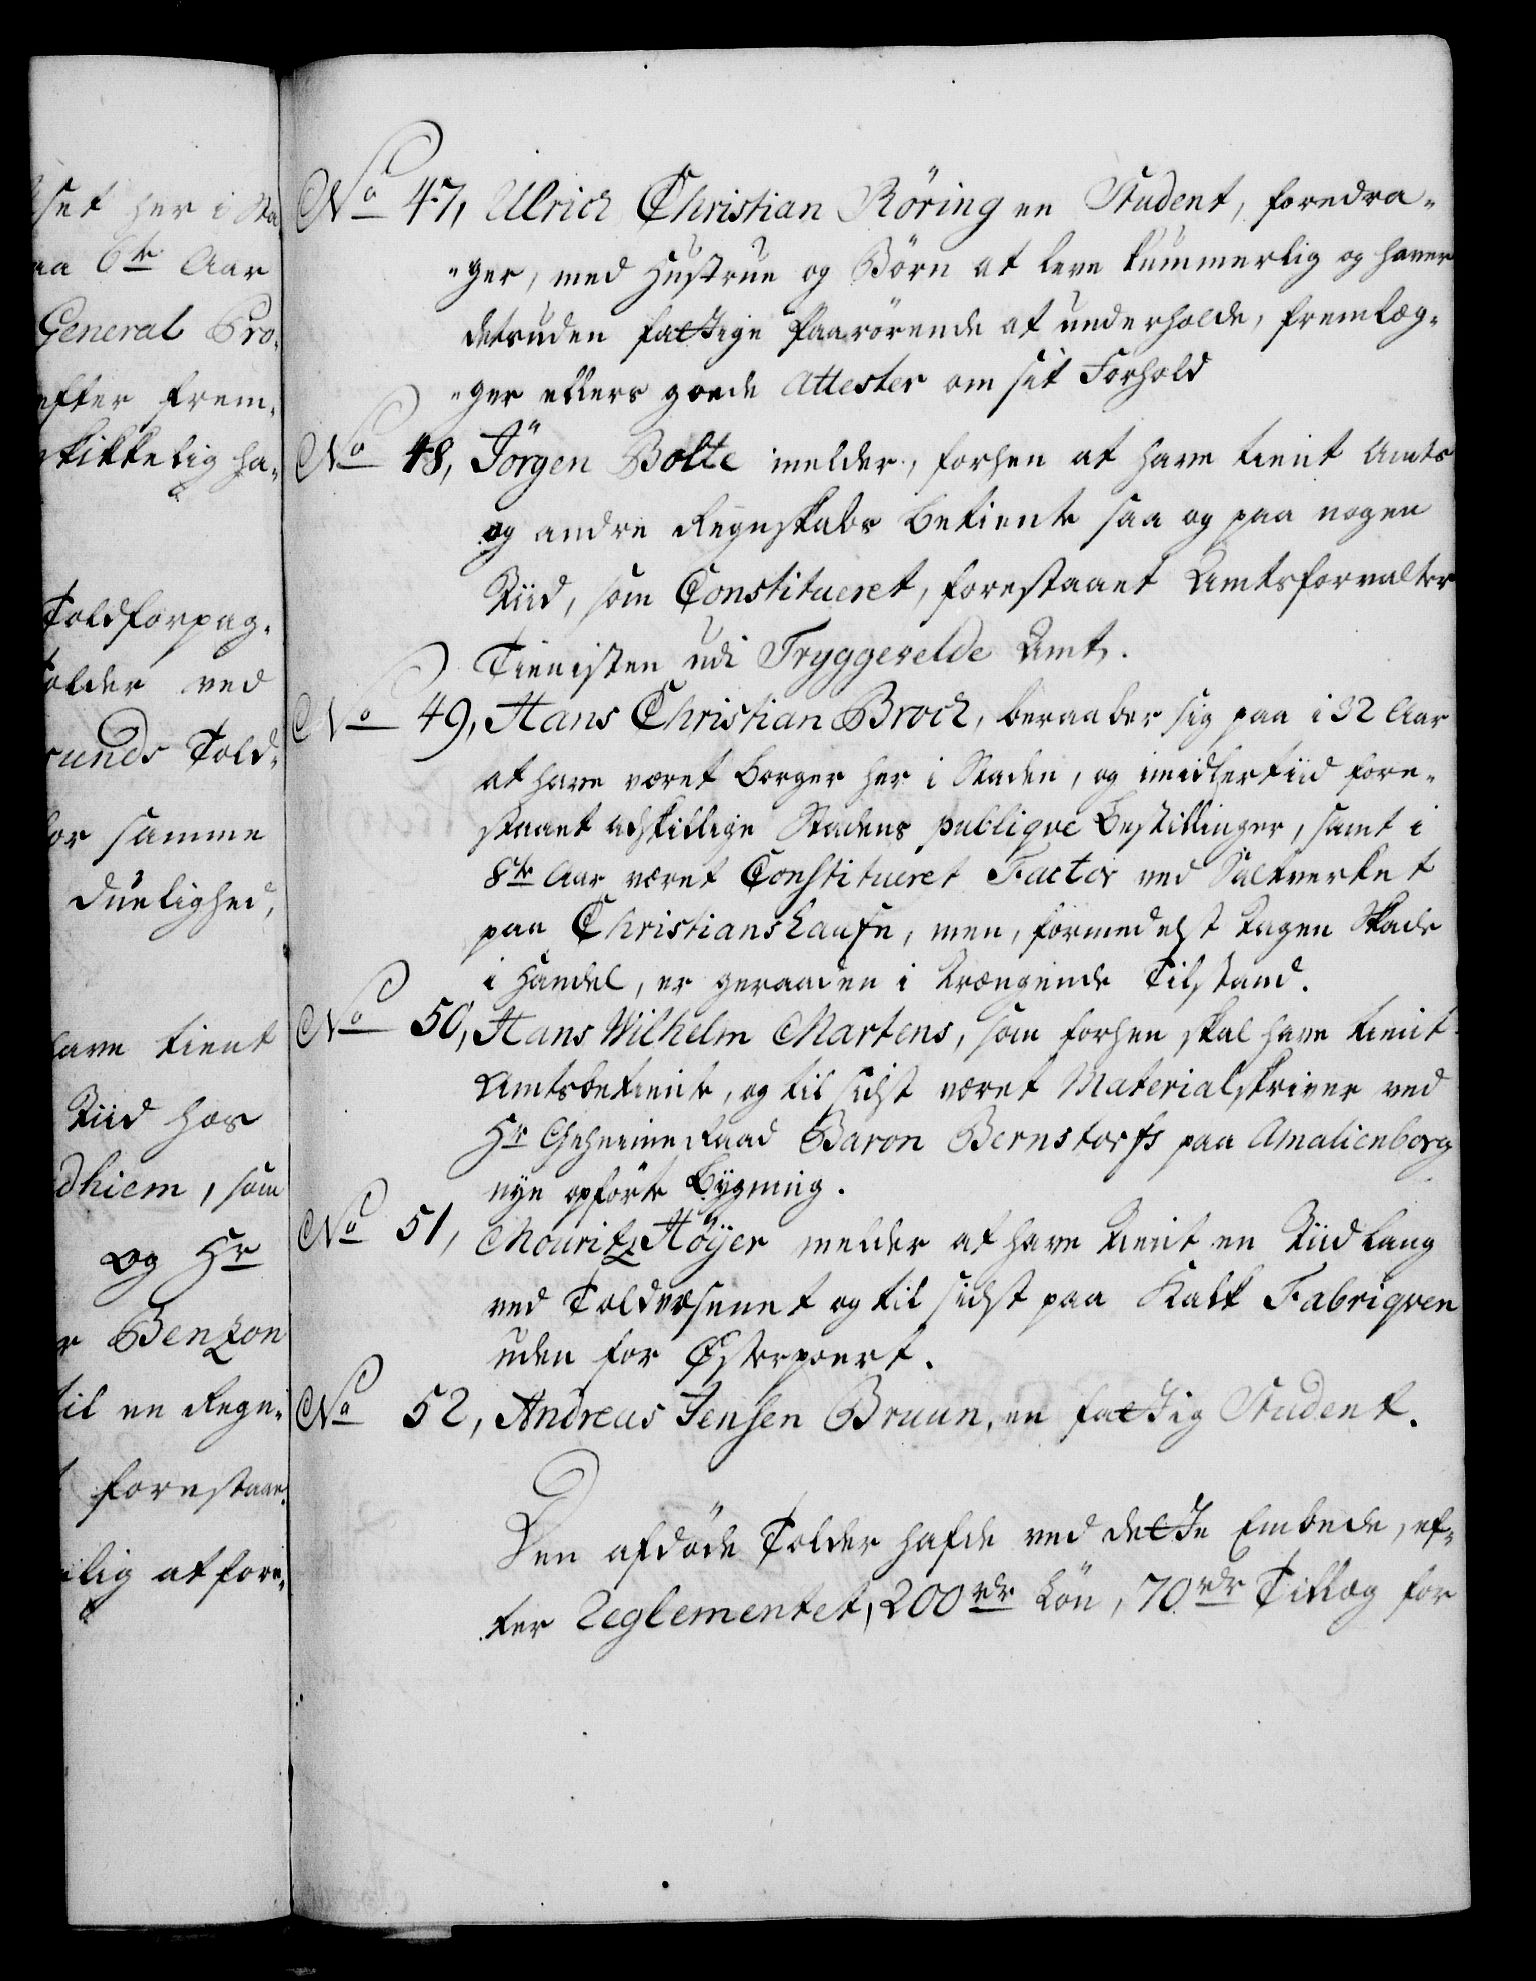 set her i Sta
aa 6te Aar
General Pro-
efter frem-
skikkelig ha-
Toldforpag-
tolder ved
sunds Told-
for samme
Duelighed,
have tient
Tiid hos
dhiem, som
og Hr
r Benzon
til en Regn-
forestaae
elig at fore-
No 47, Ulrich Christian Röring en Student, foredra-
-ger, med Hustrue og Börn at leve kummerlig og haver
desuden fattige Paarörende at underholde, fremlæg-
-ger ellers goede Attester om sit Forhold
No 48, Jörgen Bolte melder, forhen at have tient Amts
og andre Regnskabs Betiente saa og paa nogen
Tiid, som Constitueret, forestaaet Amtsforvalter
Tienesten udi Tryggevelde Amt.
No 49, Hans Christian Broch, beraaber sig paa i 32 Aar
at have været Borger her i Staden, og imidlertiid fore-
staaet adskillige Stadens publiqve Bestillinger, samt i
8te Aar været Constitueret Factor ved Saltverket
paa Christianshaufn, men, formedelst tagen Skade
i Handel, er geraaden i trængende Tilstand.
No 50, Hans Wilhelm Martens, som forhen skal have tient
Amtsbetiente, og til sidst været Materialskriver ved
Hr Geheime Raad Baron Bernstorfs paa Amalienborg
nye opförte Bygning.
No 51, Mouritz Höÿer melder at have tient en Tiid lang
ved Toldvæsenet og til sidst paa Kalk Fabriqven
uden for Østerpoert.
No 52, Andreas Jensen Bruun, en fattig Student.
Den afdöde Tolder hafde ved dette Embede, ef-
ter Reglementet, 200 rdr Lön, 70 rdr Tillæg for